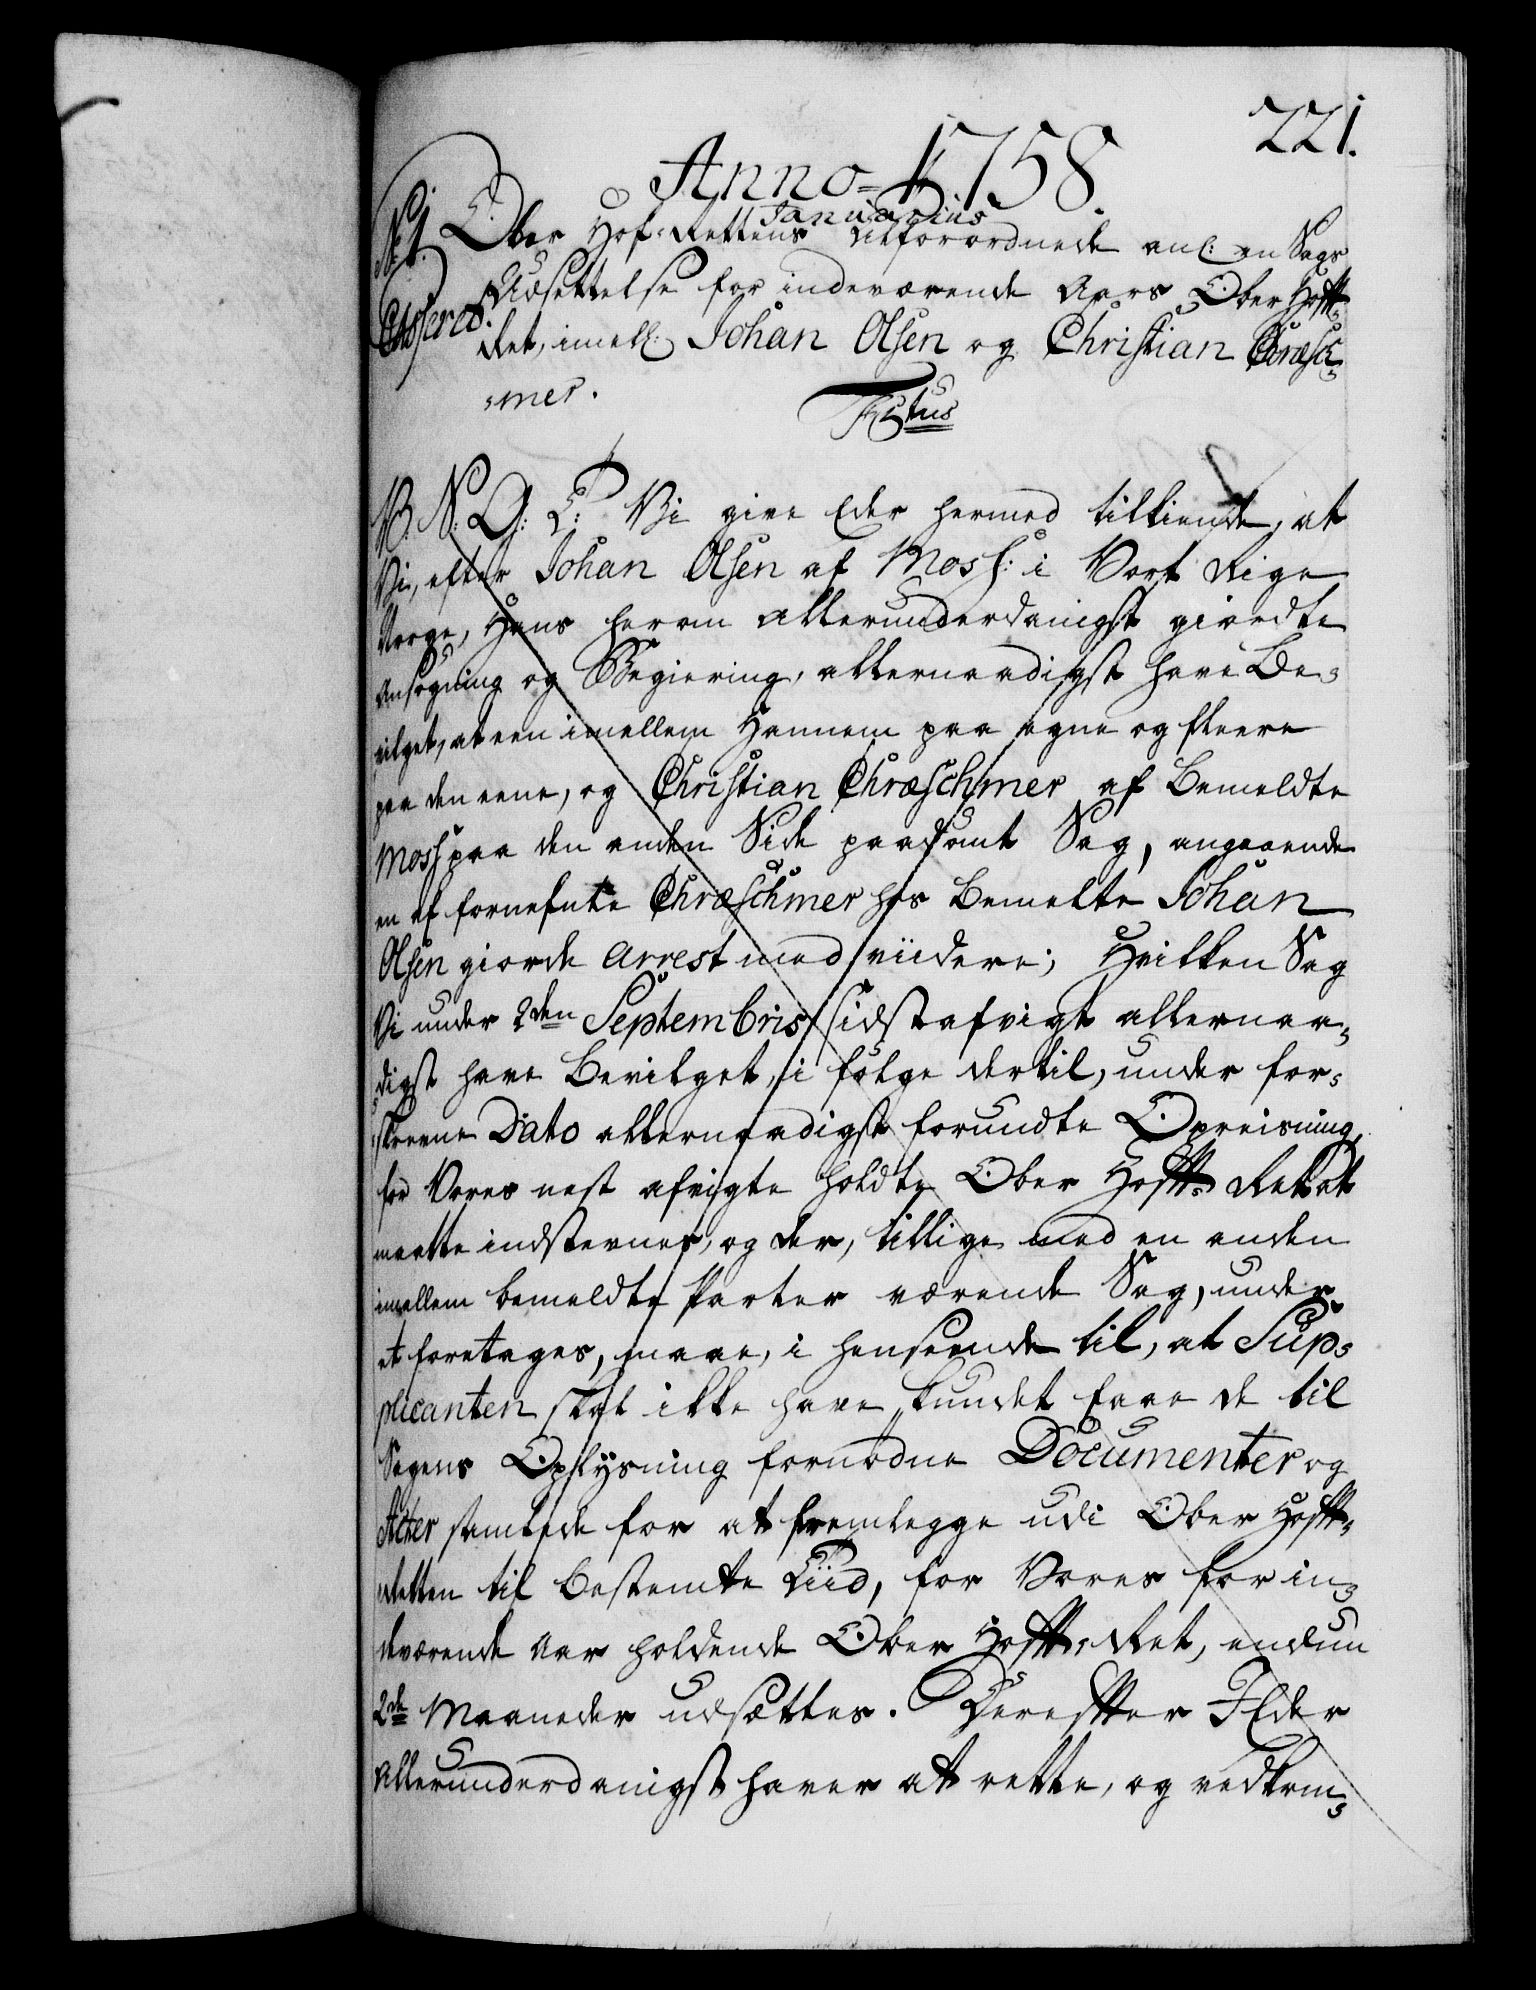 221.
Anno 1758.
Januarius
N: 1. Ober Hof-Rettens Tilforordnede anl: en Sags
Udsettelse for indeværende Aars Ober Hoff-
Ret, imell: Johan Olsen og Christian Chræsch-
mer.
V. S. G. T: Vi give Eder hermed tilkiende, at
Vi, efter Johan Olsen af Moss: i Vort Rige
Norge, Hans herom allerunderdanigst giordte
Ansøgning og Begiering, allernaadigst have Be-
vilget, at een imellem Hannem paa egne og fleere
paa den eene, og Christian Chræschmer af Bemeldte
Moss paa den anden Side paadømt Sag, angaaende
en af fornefnte Chræschmer hos Bemelte Johan
Olsen giorde Arrest med viidere; Hvilken Sag
Vi under 2den Septembris sidstafvigt allernaa-
digst have Bevilget, i følge dertil, under for-
skrevne Dato allernaadigst forundte Opreisning,
for Vores nest afvigte holdte Ober Hoff-Ret at
maatte indstevnes, og der, tillige med en anden
imellem bemeldte Parter værende Sag, under
et foretages, maae, i henseende til, at Sup-
plicanten skal ikke have kundet faae de til
Sagens Oplysning fornødne Documenter og
Acter samlede for at fremlegge udi Ober Hoff-
Retten til bestemte Tiid, for Vores for in-
deværende Aar holdende Ober Hoff-Ret, endnu
2de Maaneder udsættes. Derefter I Eder
allerunderdanigst haver at rette, og vedkom-